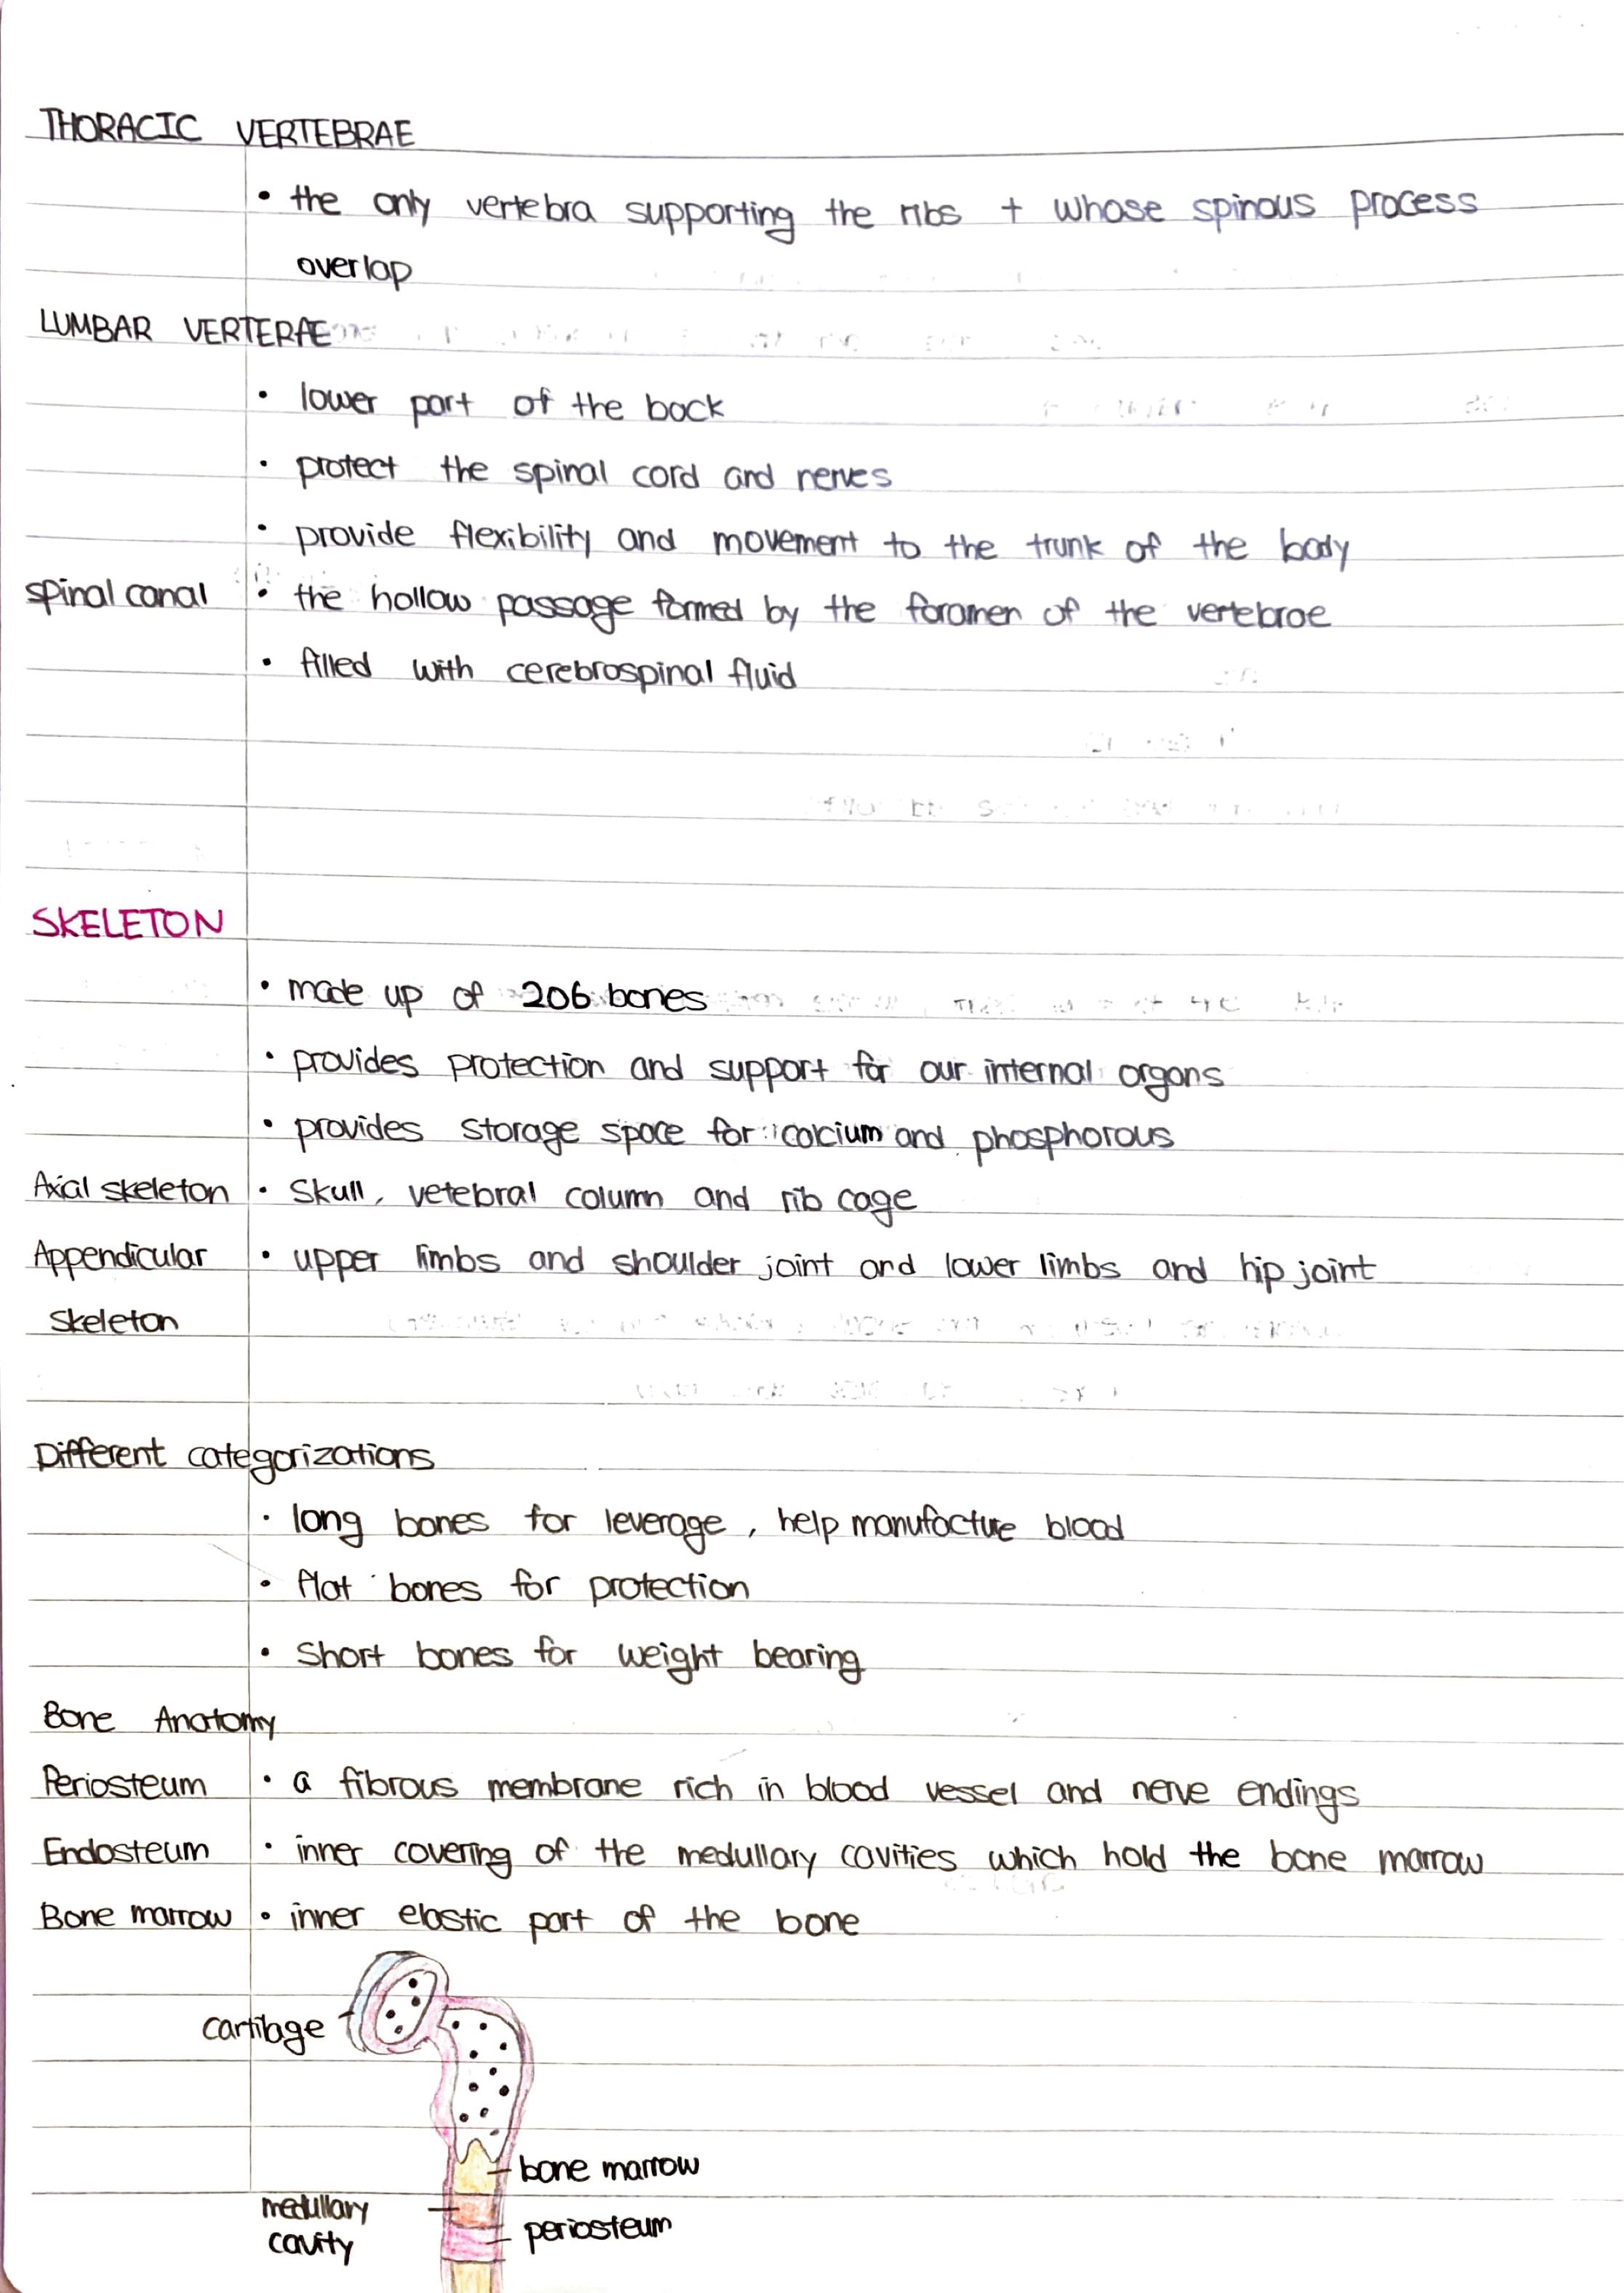 THORACIC VERTEBRAE
• the only vertebra supporting the ribs + whose spinous process
overlap
LUMBAR VERTERAE
• lower part of the back
• protect the spinal cord and nerves
• provide flexibility and movement to the trunk of the body
spinal canal • the hollow passage formed by the foramen of the vertebrae
• filled with cerebrospinal fluid
SKELETON
• made up of 206 bones
• provides protection and support for our internal organs
• provides storage space for calcium and phosphorous
Axial skeleton • Skull, vetebral column and rib cage
Appendicular • upper limbs and shoulder joint and lower limbs and hip joint
skeleton
Different categorizations
• long bones for leverage, help manufacture blood
• flat bones for protection
• Short bones for weight bearing
Bone Anatomy
Periosteum • a fibrous membrane rich in blood vessel and nerve endings
Endosteum • inner covering of the medullary cavities which hold the bone marrow
Bone marrow • inner elastic part of the bone
cartilage
bone marrow
medullary
cavity
periosteum